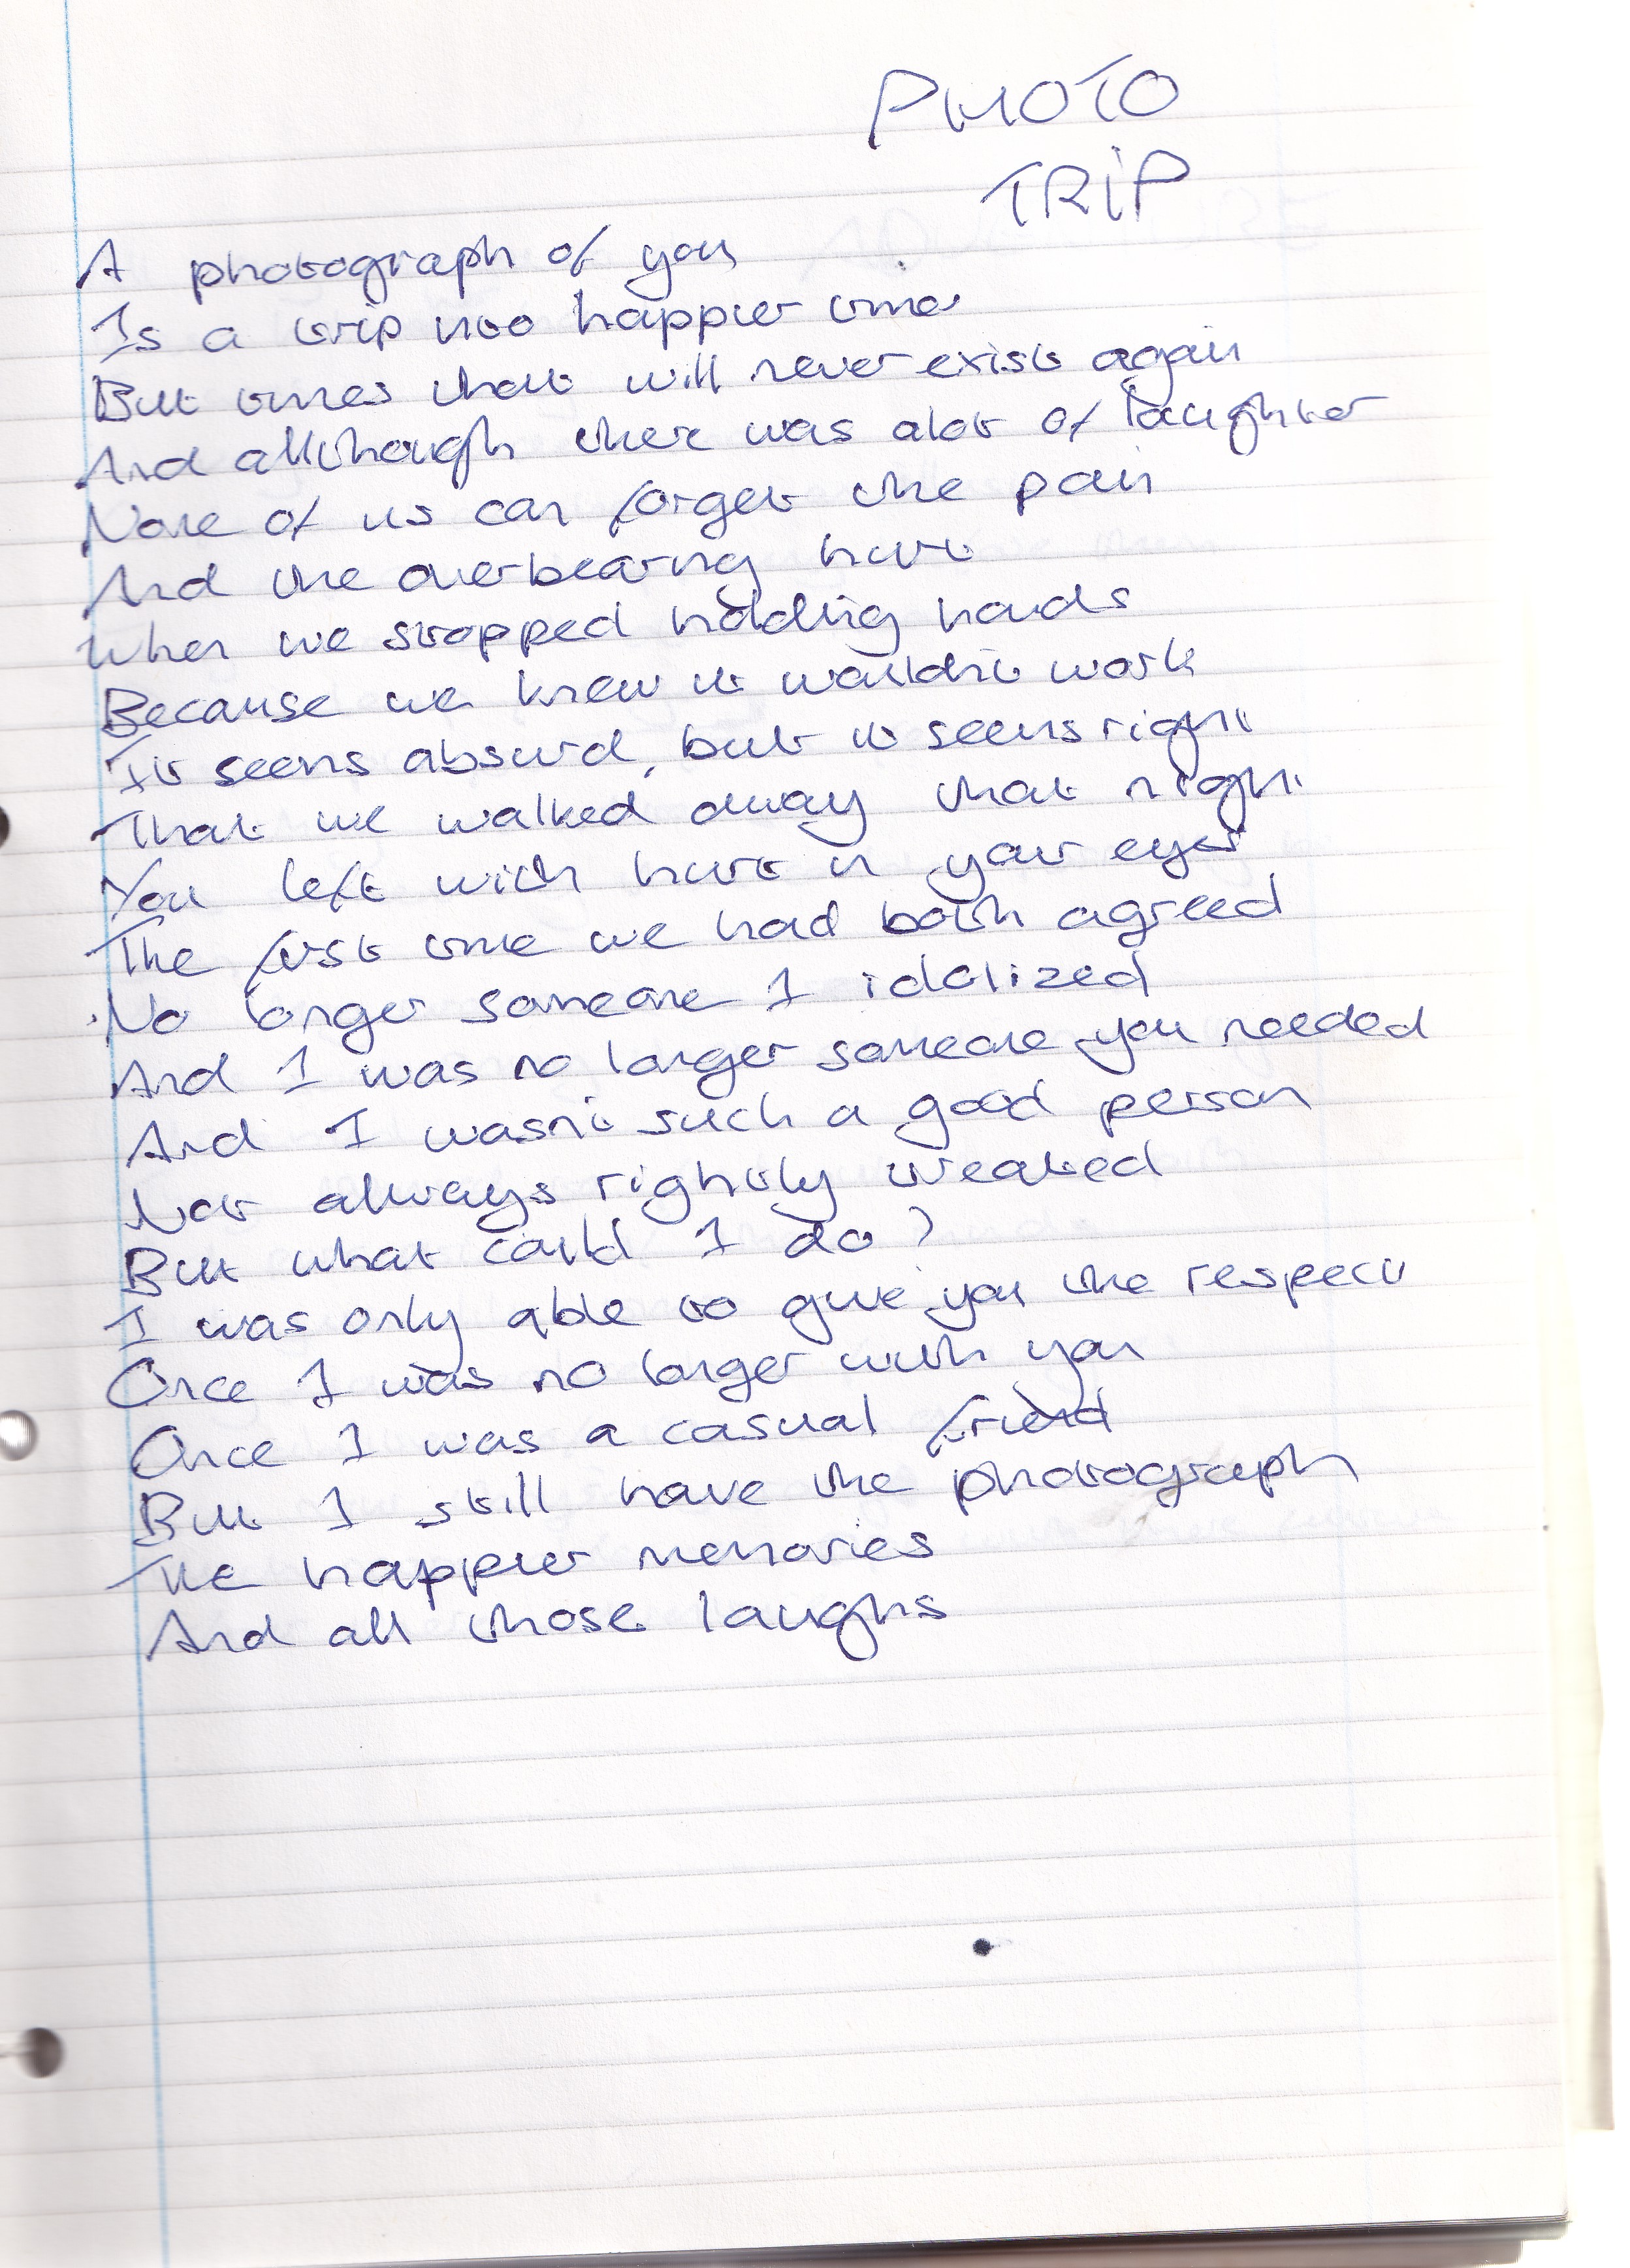 PHOTO
TRIP
A photograph of you
Is a trip into happier times
But times that will never exist again
And allthough there was alot of laughter
None of us can forget the pain
And the overbearing hurt
When we stopped holding hands
Because we knew it wouldn't work
It seems absurd, but it seems right
That we walked away that night
You left with hurt in your eyes
The first time we had both agreed
No longer someone I idolized
And I was no longer someone you needed
And I wasn't such a good person
Not always rightly treated
But what could I do?
I was only able to give you the respect
Once I was no longer with you
Once I was a casual friend
But I still have the photograph
The happier memories
And all those laughs